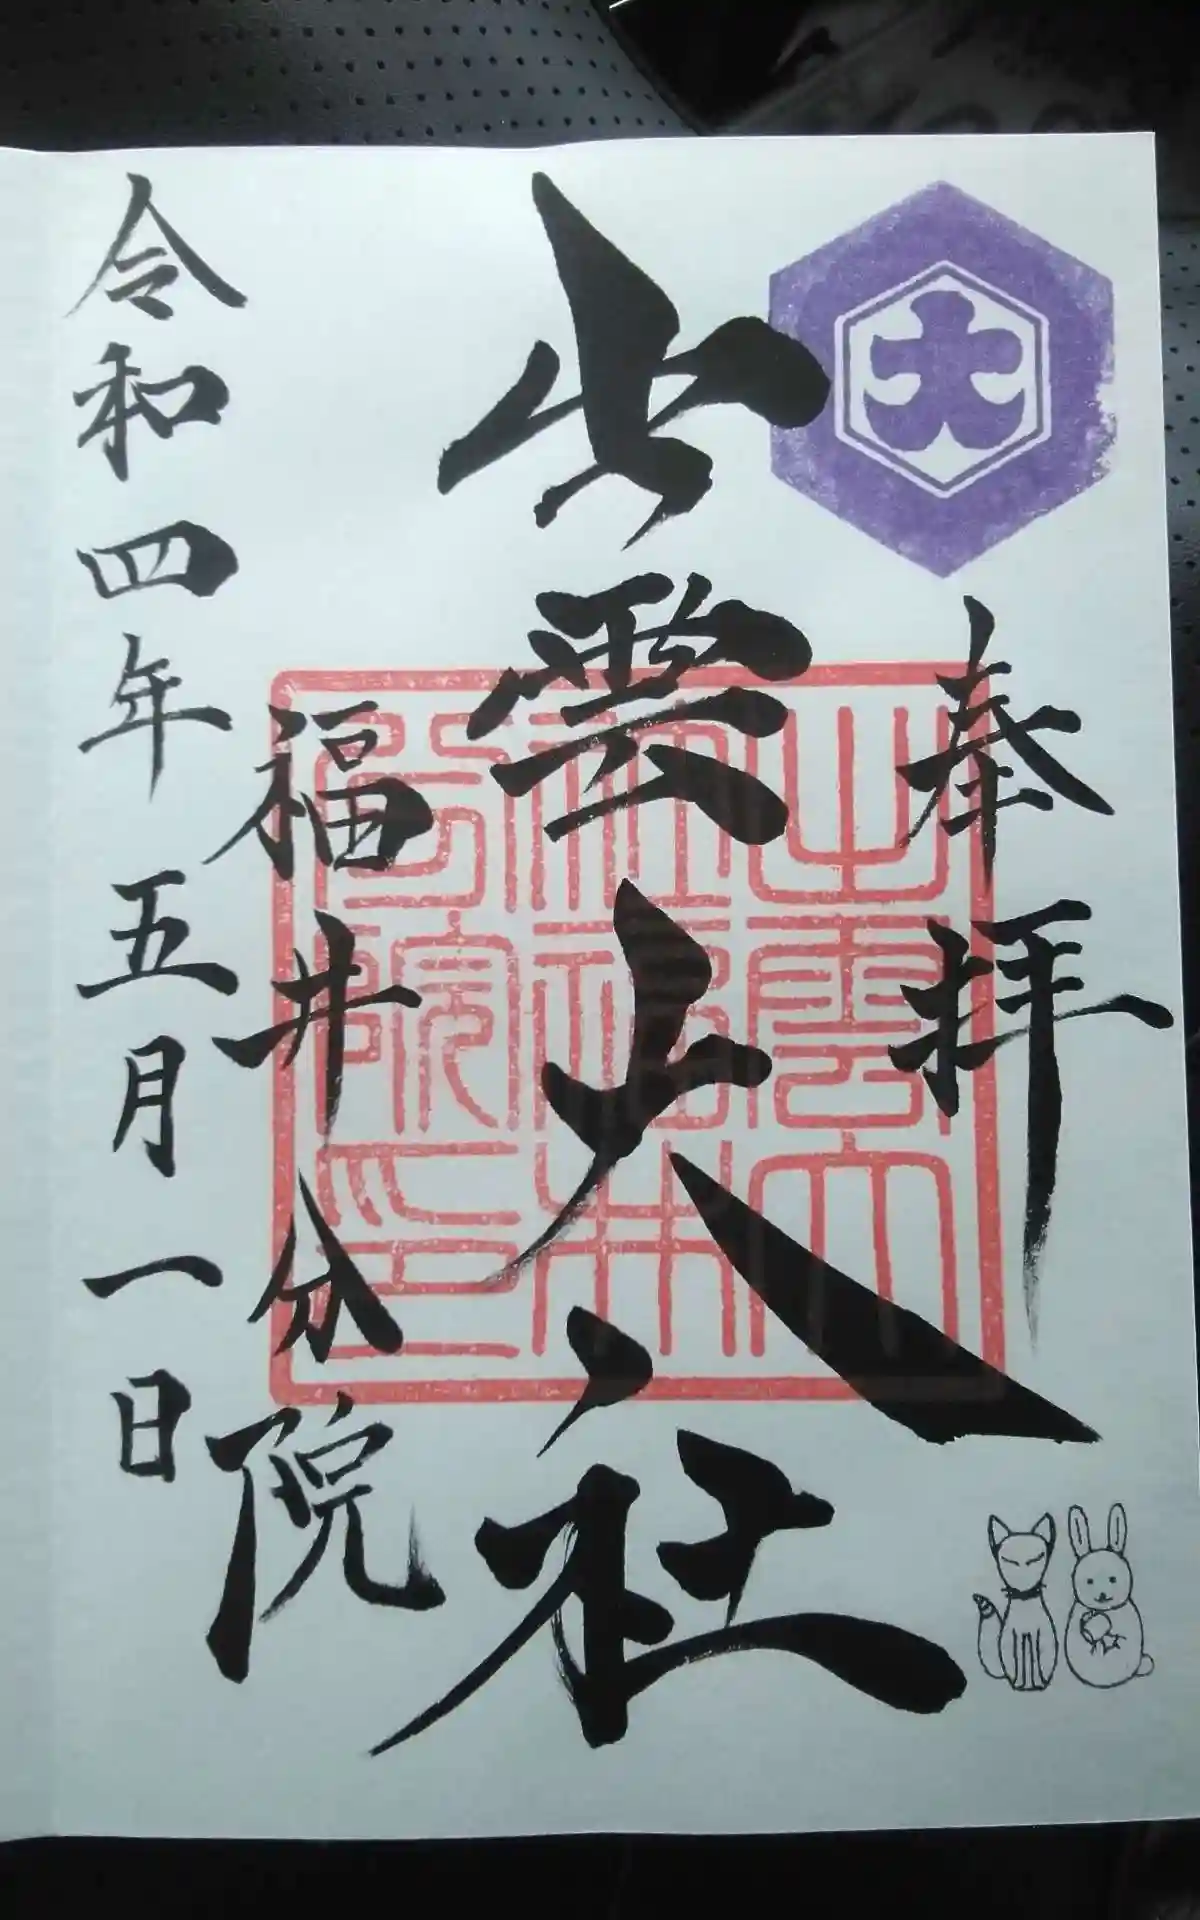 奉拝
出雲大社
福井分院
令和四年五月一日
大
出雲大
社福井
分院之印